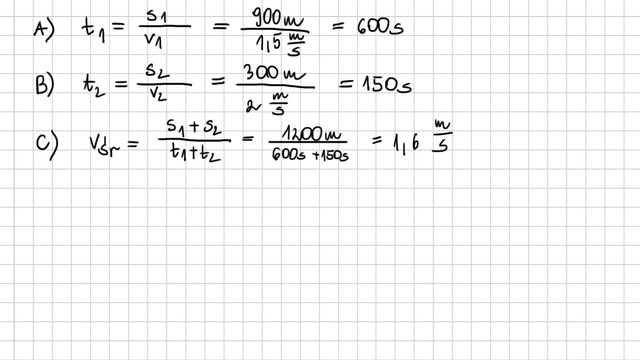 A) t₁ = s₁/v₁ = 900m/1,5 m/s = 600s
B) t₂ = s₂/v₂ = 300m/2 m/s = 150s
C) vśr = s₁+s₂/t₁+t₂ = 1200m/600s+150s = 1,6 m/s